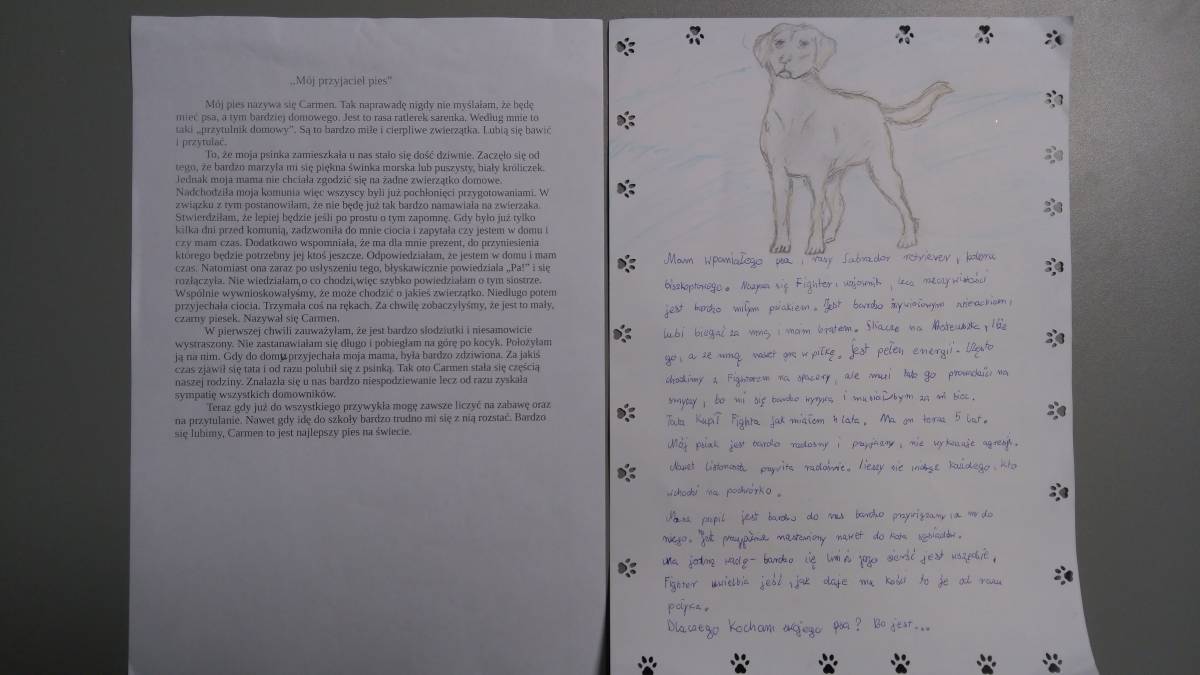 ,,Mój przyjaciel pies”
Mój pies nazywa się Carmen. Tak naprawadę nigdy nie myślałam, że będę
mieć psa, a tym bardziej domowego. Jest to rasa ratlerek sarenka. Według mnie to
taki „przytulnik domowy”. Są to bardzo miłe i cierpliwe zwierzątka. Lubią się bawić
i przytulać.
To, że moja psinka zamieszkała u nas stało się dość dziwnie. Zaczęło się od
tego, że bardzo marzyła mi się piękna świnka morska lub puszysty, biały króliczek.
Jednak moja mama nie chciała zgodzić się na żadne zwierzątko domowe.
Nadchodziła moja komunia więc wszyscy byli już pochłonięci przygotowaniami. W
związku z tym postanowiłam, że nie będę już tak bardzo namawiała na zwierzaka.
Stwierdziłam, że lepiej będzie jeśli po prostu o tym zapomnę. Gdy było już tylko
kilka dni przed komunią, zadzwoniła do mnie ciocia i zapytała czy jestem w domu i
czy mam czas. Dodatkowo wspomniała, że ma dla mnie prezent, do przyniesienia
którego będzie potrzebny jej ktoś jeszcze. Odpowiedziałam, że jestem w domu i mam
czas. Natomiast ona zaraz po usłyszeniu tego, błyskawicznie powiedziała „Pa!” i się
rozłączyła. Nie wiedziałam,o co chodzi,więc szybko powiedziałam o tym siostrze.
Wspólnie wywnioskowałyśmy, że może chodzić o jakieś zwierzątko. Niedługo potem
przyjechała ciocia. Trzymała coś na rękach. Za chwilę zobaczyłyśmy, że jest to mały,
czarny piesek. Nazywał się Carmen.
W pierwszej chwili zauważyłam, że jest bardzo słodziutki i niesamowicie
wystraszony. Nie zastanawiałam się długo i pobiegłam na górę po kocyk. Położyłam
ją na nim. Gdy do domu przyjechała moja mama, była bardzo zdziwiona. Za jakiś
czas zjawił się tata i od razu polubił się z psinką. Tak oto Carmen stała się częścią
naszej rodziny. Znalazła się u nas bardzo niespodziewanie lecz od razu zyskała
sympatię wszystkich domowników.
Teraz gdy już do wszystkiego przywykła mogę zawsze liczyć na zabawę oraz
na przytulanie. Nawet gdy idę do szkoły bardzo trudno mi się z nią rozstać. Bardzo
się lubimy, Carmen to jest najlepszy pies na świecie.
Mam wspaniałego psa, rasy labrador retriever, koloru
biszkoptowego. Nazywa się Fighter, wojownik, lecz w rzeczywistości
jest bardzo miłym psiakiem. Jest bardzo żywiołowym zwierzakiem,
lubi biegać za mną i moim bratem. Skacze na Mateuszka, liże
go, a ze mną nawet gra w piłkę. Jest pełen energii. Często
chodzimy z Fighterem na spacery, ale musi tata go prowadzić na
smyczy, bo mi się bardzo wyrywa i musiałbym za nim biec.
Tata kupił Fightera jak miałem 4 lata. Ma on teraz 5 lat.
Mój psiak jest bardzo radosny i przyjazny, nie wykazuje agresji.
Nawet listonosza przywita radośnie. Cieszy się widząc każdego, kto
wchodzi na podwórko.
Nasz pupil jest bardzo do nas bardzo przywiązany, a my do
niego. Jest przyjaźnie nastawiony nawet do kota sąsiadów.
Ma jedną wadę - bardzo się leni i jego sierść jest wszędzie.
Fighter uwielbia jeść, jak daję mu kości to je od razu
połyka.
Dlaczego kocham mojego psa? Bo jest...